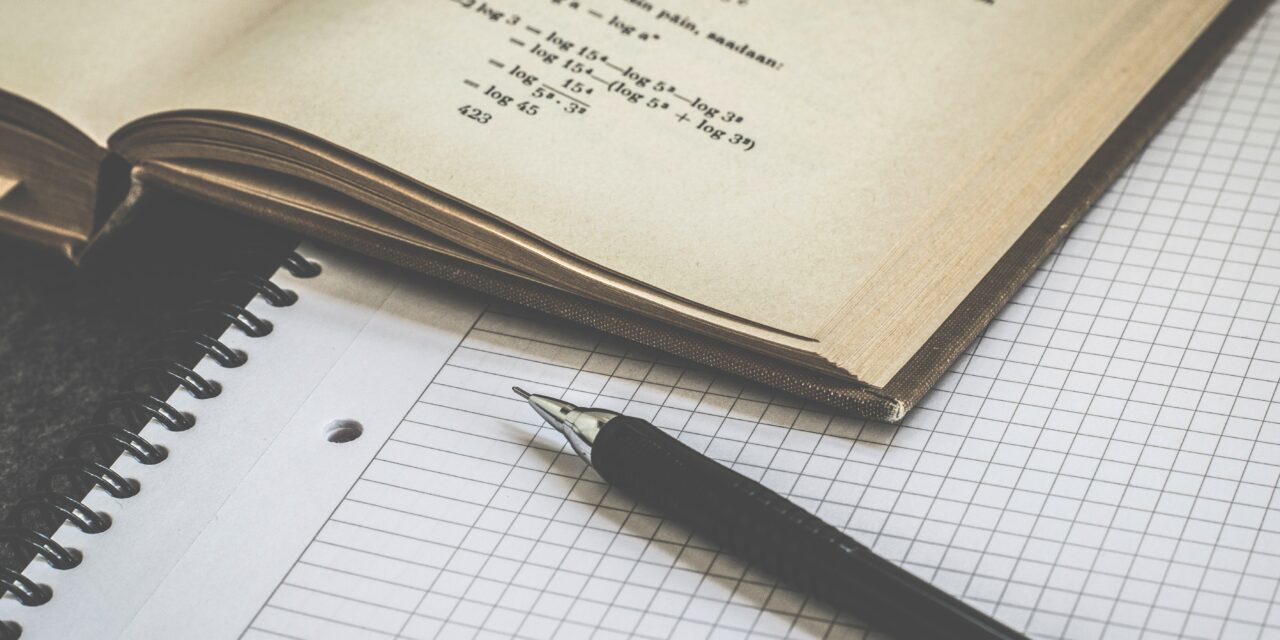 log a = log a
päin, saadaan:
log 3 = log 15⁴—log 5³—log 3²
= log 15⁴—(log 5³ + log 3²)
= log 15⁴
5³ · 3²
= log 45
423